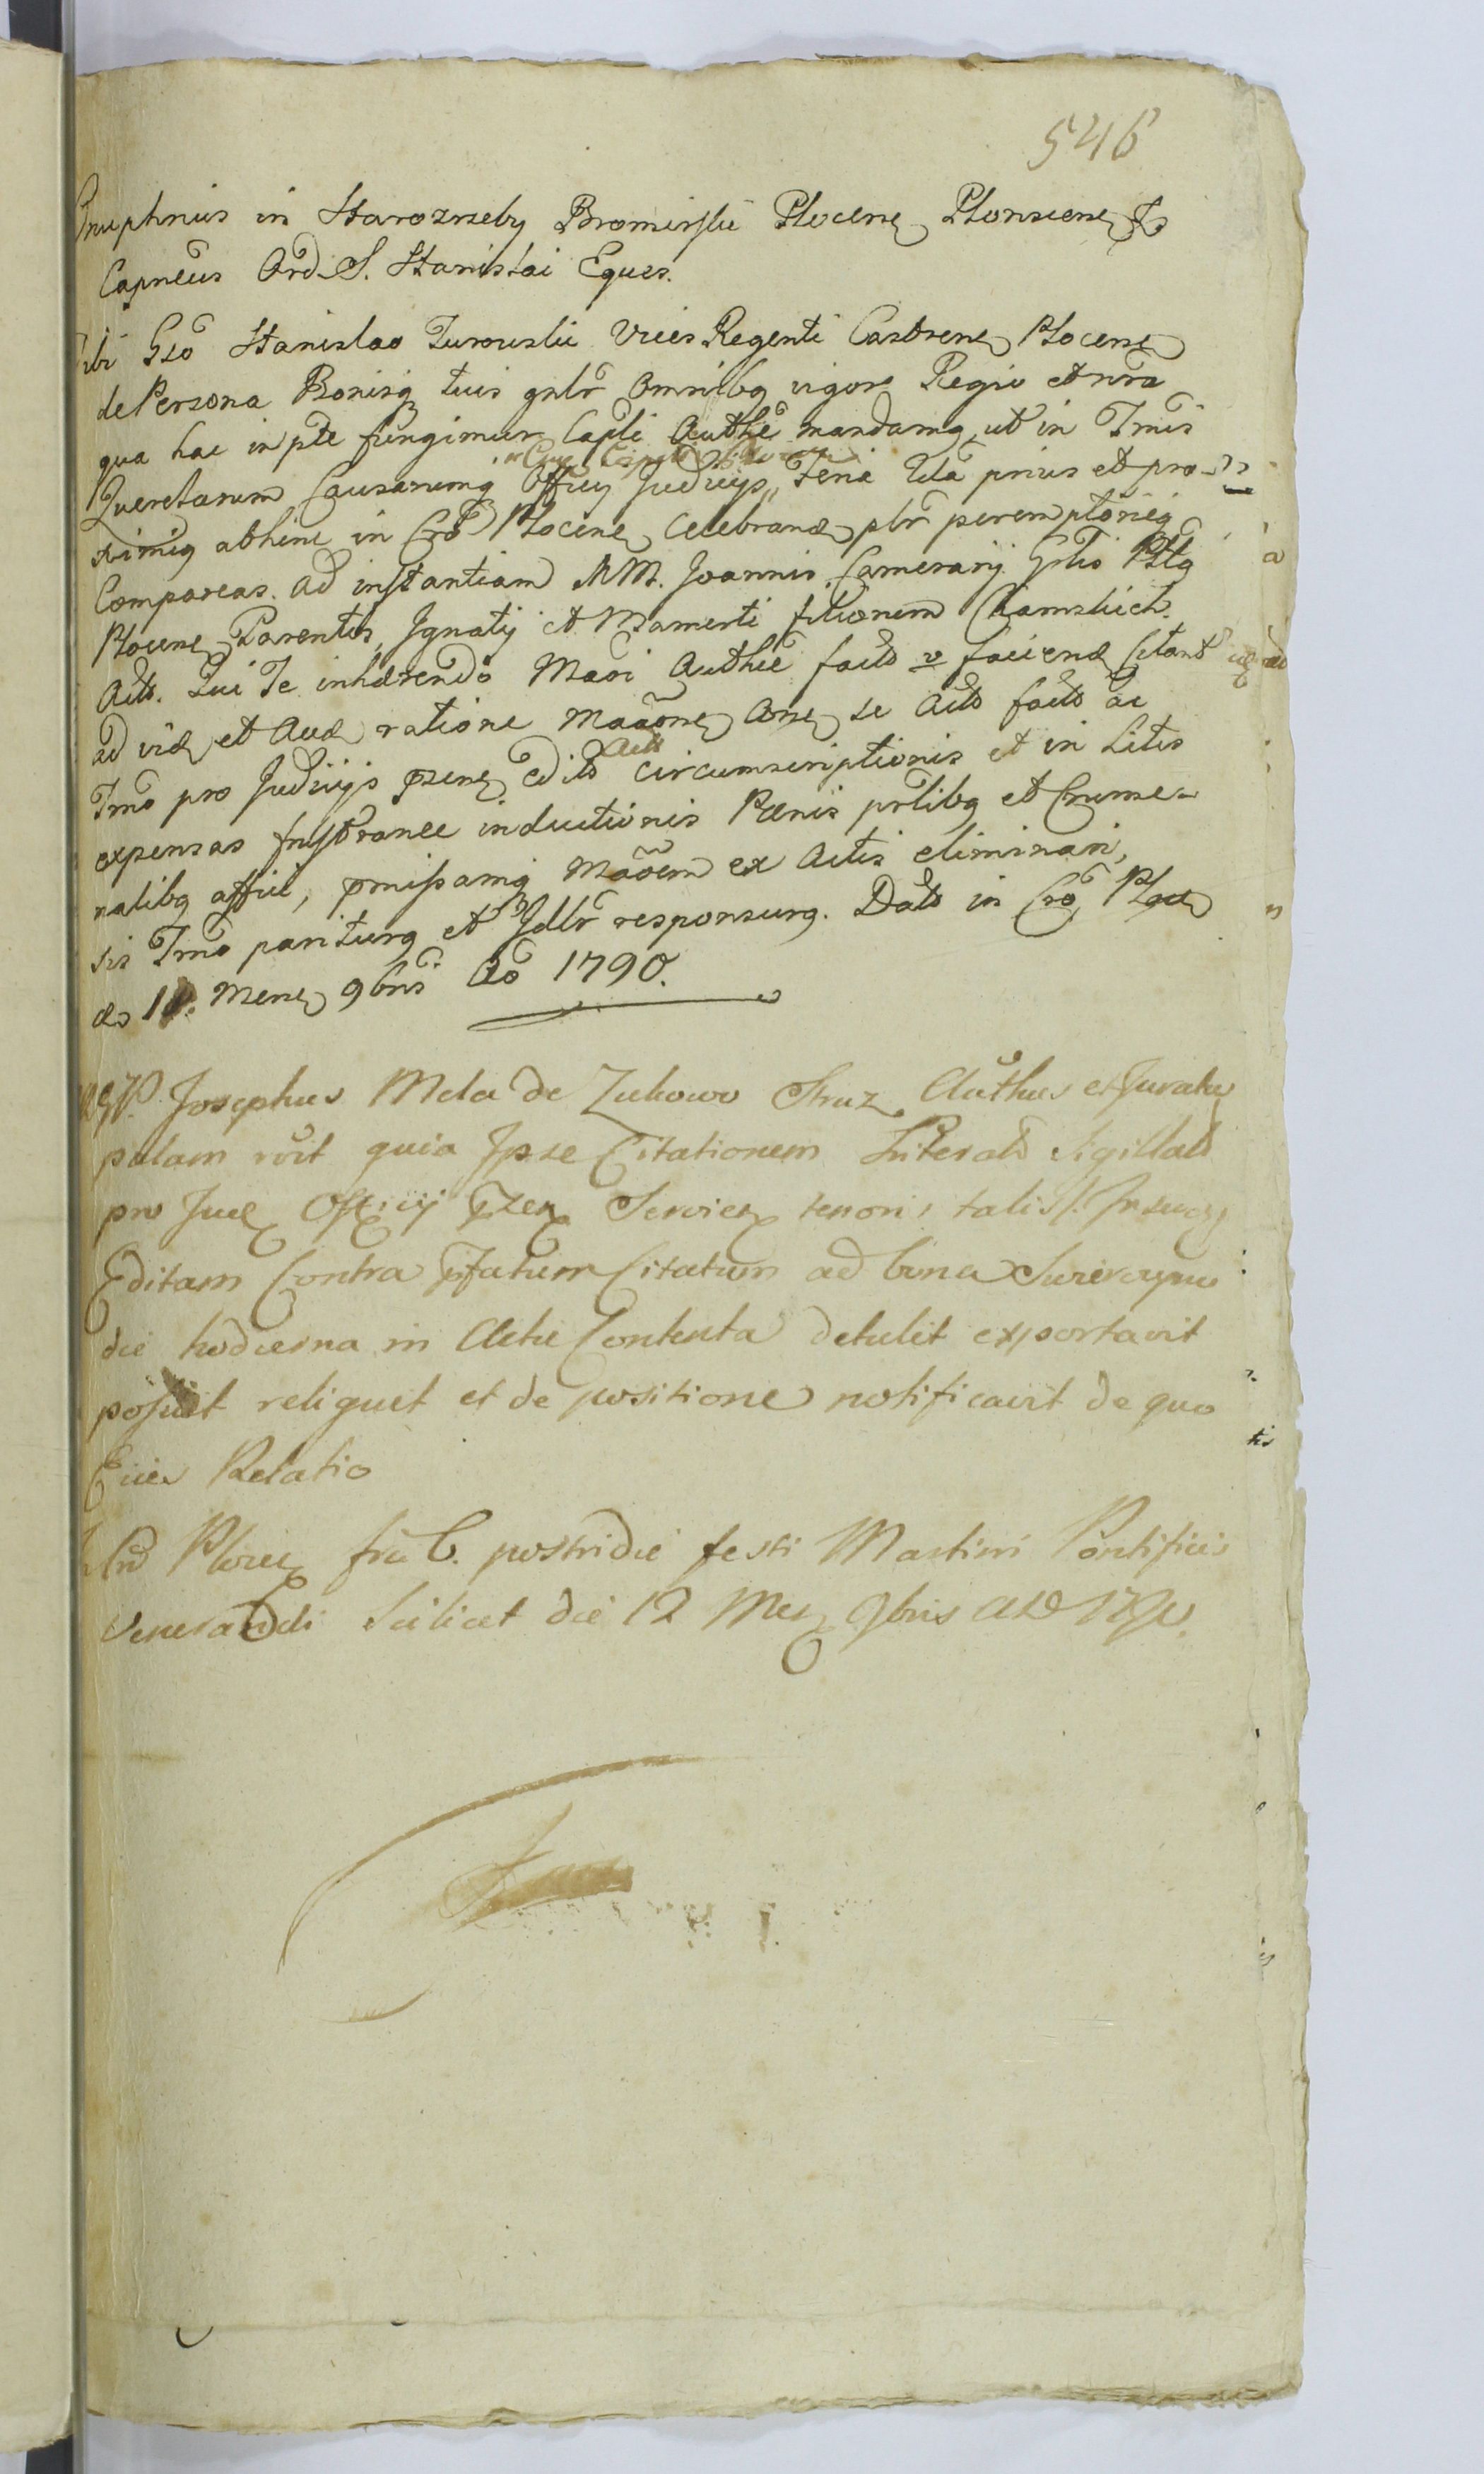 546
Onuphrius in Starozrzeby Bromirski Plocen Plonscen &
Capneus Ord S. Stanislai Eques.
Tibi Gso Stanislao Turouski Vices Regenti Castren Plocen
de Persona Bonisq tuis gnlr Omnibq vigore Regio et nra
qua hac in pte fungimur Capli Authe mandamq ut in Tmis
Querelarum Causarumq Officy Judicys Feria IIda prius et pro-
ximiq abhinc in Cro Plocen Celebrand plr peremptorieq
Compareas. ad instantiam MM. Joannis Camerary Grlis Pltq
Plocen Parentis, Ignatij et Mamerti filiorum
Acto. Qui Te inhærendo Maori Authe facto v faciend Citant
ad vid et Aud ratione Maaone Cone se Acto facto ac
Acto
Tmo pro Judicijs pzen edito circumscriptionis et in Litis
expensas frustranee inductionis Pænis prlibq et Crume-
nalibq affici, pmissamq Maoem ex Actis eliminari,
sis Tmo pariturq et Jdlr responsurq. Dato in Cro Ploc
d 10. Mens 9bris Ao 1790.
Josephus Mela de Zukowo Struz Authus et Juratus
palam rvit quia Ipse Citationem Literato Sigillato
pro Jud Officij pzen Servien tenoris talis
Editam Contra pfatum Citatum ad bina
die hodierna in Actu Contenta detulit exportavit
posuit reliquit et de positione notificavit de quo
Eius Relatio
Ploce fria 6. postridie festi Martini Pontificis
Venerandi Scilicet die 12 Mes 9bris AD 1790.